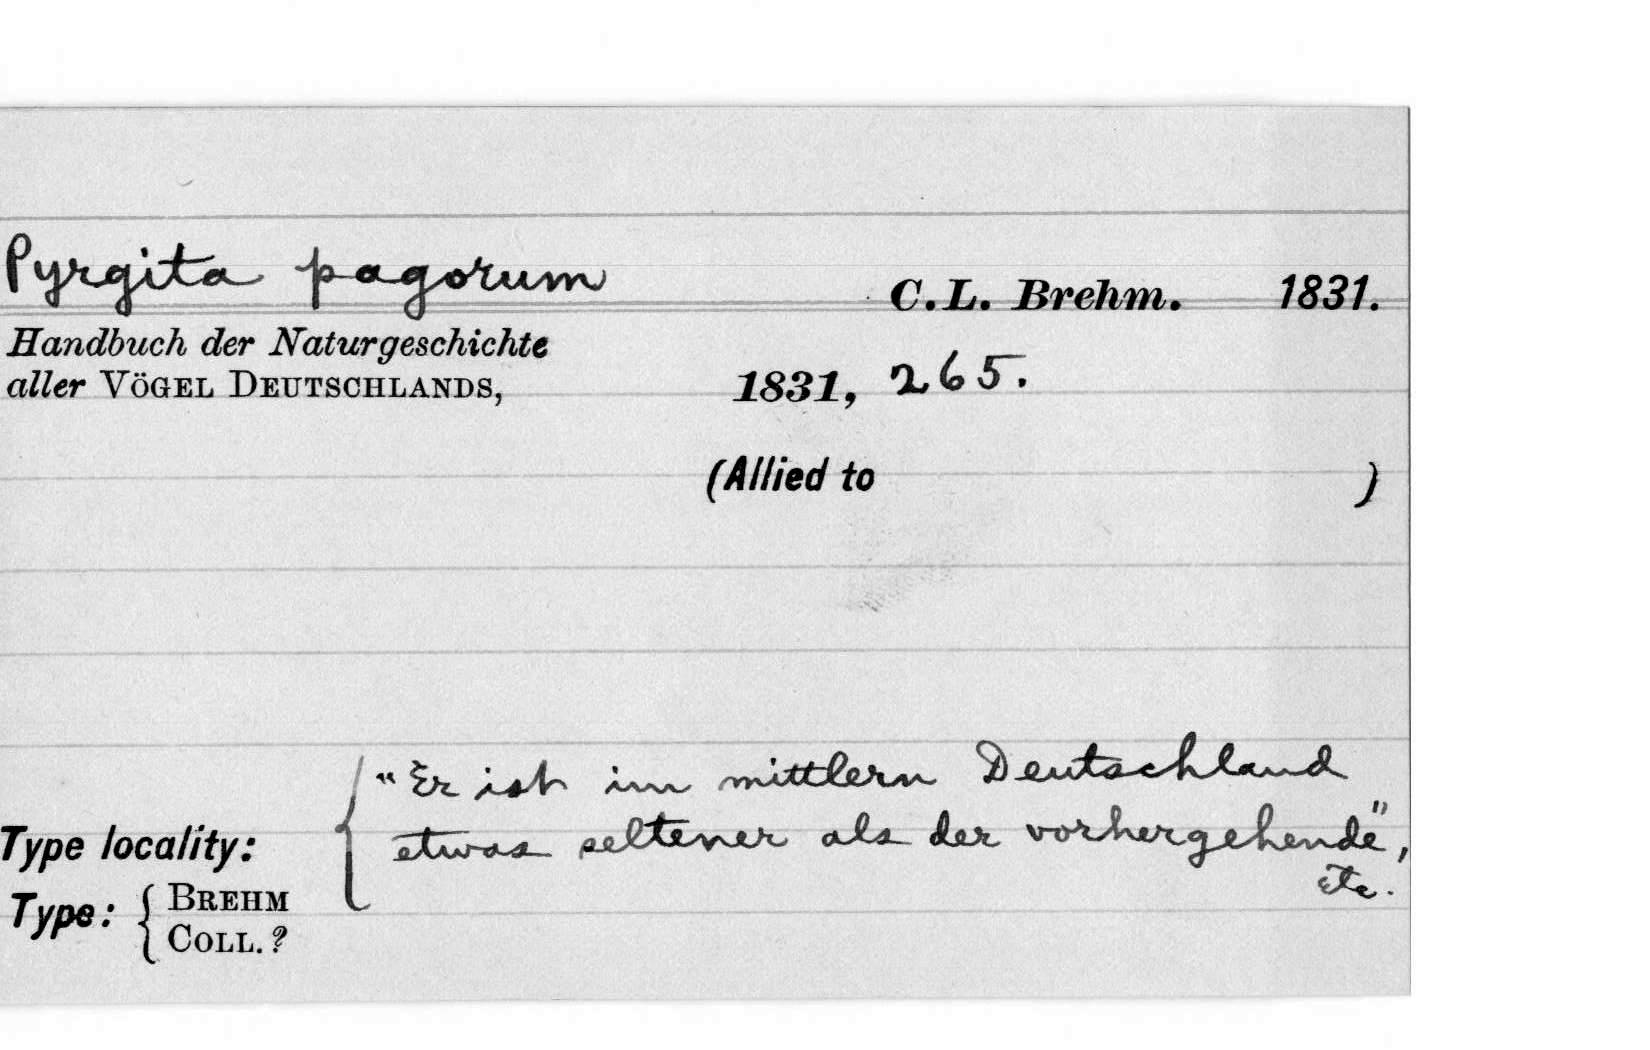 Pyrgita pagorum C.L. Brehm. 1831.
Handbuch der Naturgeschichte
aller VÖGEL DEUTSCHLANDS, 1831, 265.
(Allied to )
"Er ist im mittlern Deutschland
Type locality: etwas seltener als der vorhergehende",
etc.
Type: BREHM
COLL.?